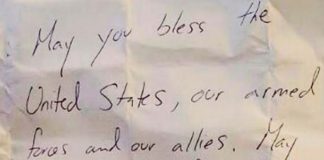 May you bless the
United States, our armed
forces and our allies. May